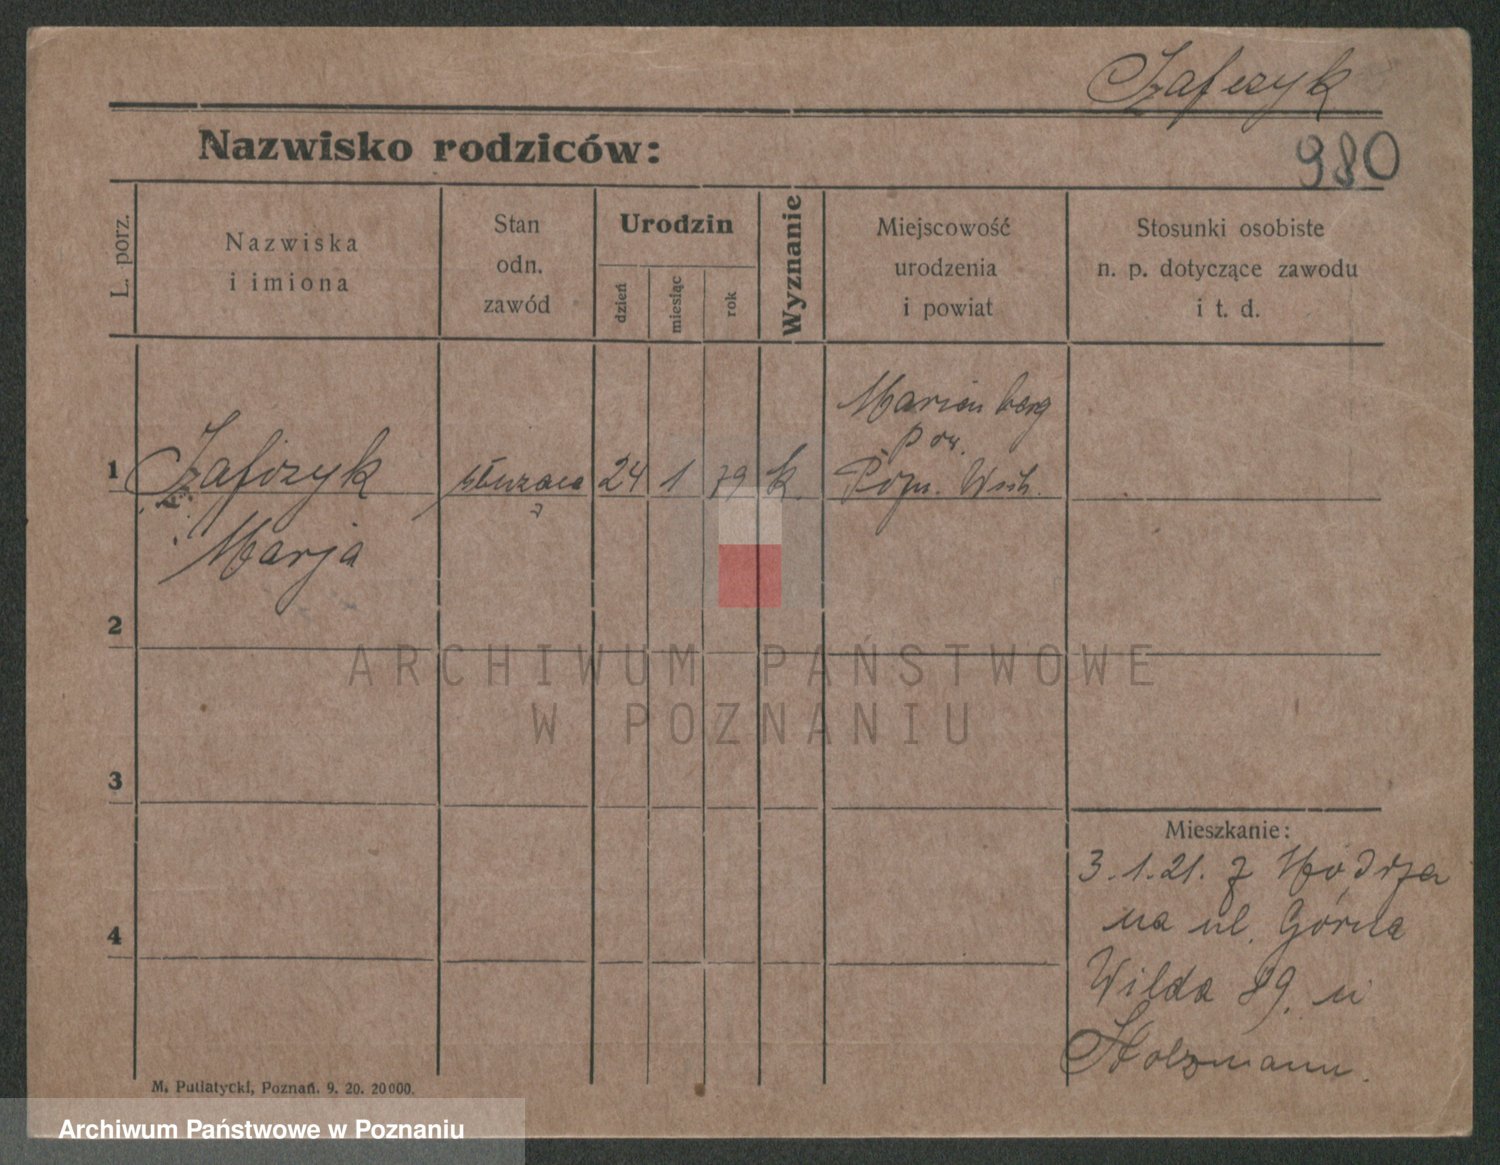 Szafczyk
Nazwisko rodziców:
980
L. porz.
Nazwiska
i imiona
Stan
odn.
zawód
Urodzin
dzień
miesiąc
rok
Wyznanie
Miejscowość
urodzenia
i powiat
Stosunki osobiste
n. p. dotyczące zawodu
i t. d.
Marienberg
pow.
1 Szafczyk służąca 24 1 79 k. Pozn. Wsch.
Marja
2
3
4
ARCHIWUM PAŃSTWOWE
W POZNANIU
Mieszkanie:
3.1.21. z
na ul. Górna
Wilda 89. u
Holzmann.
M. Putiatycki, Poznań. 9. 20. 20000.
Archiwum Państwowe w Poznaniu